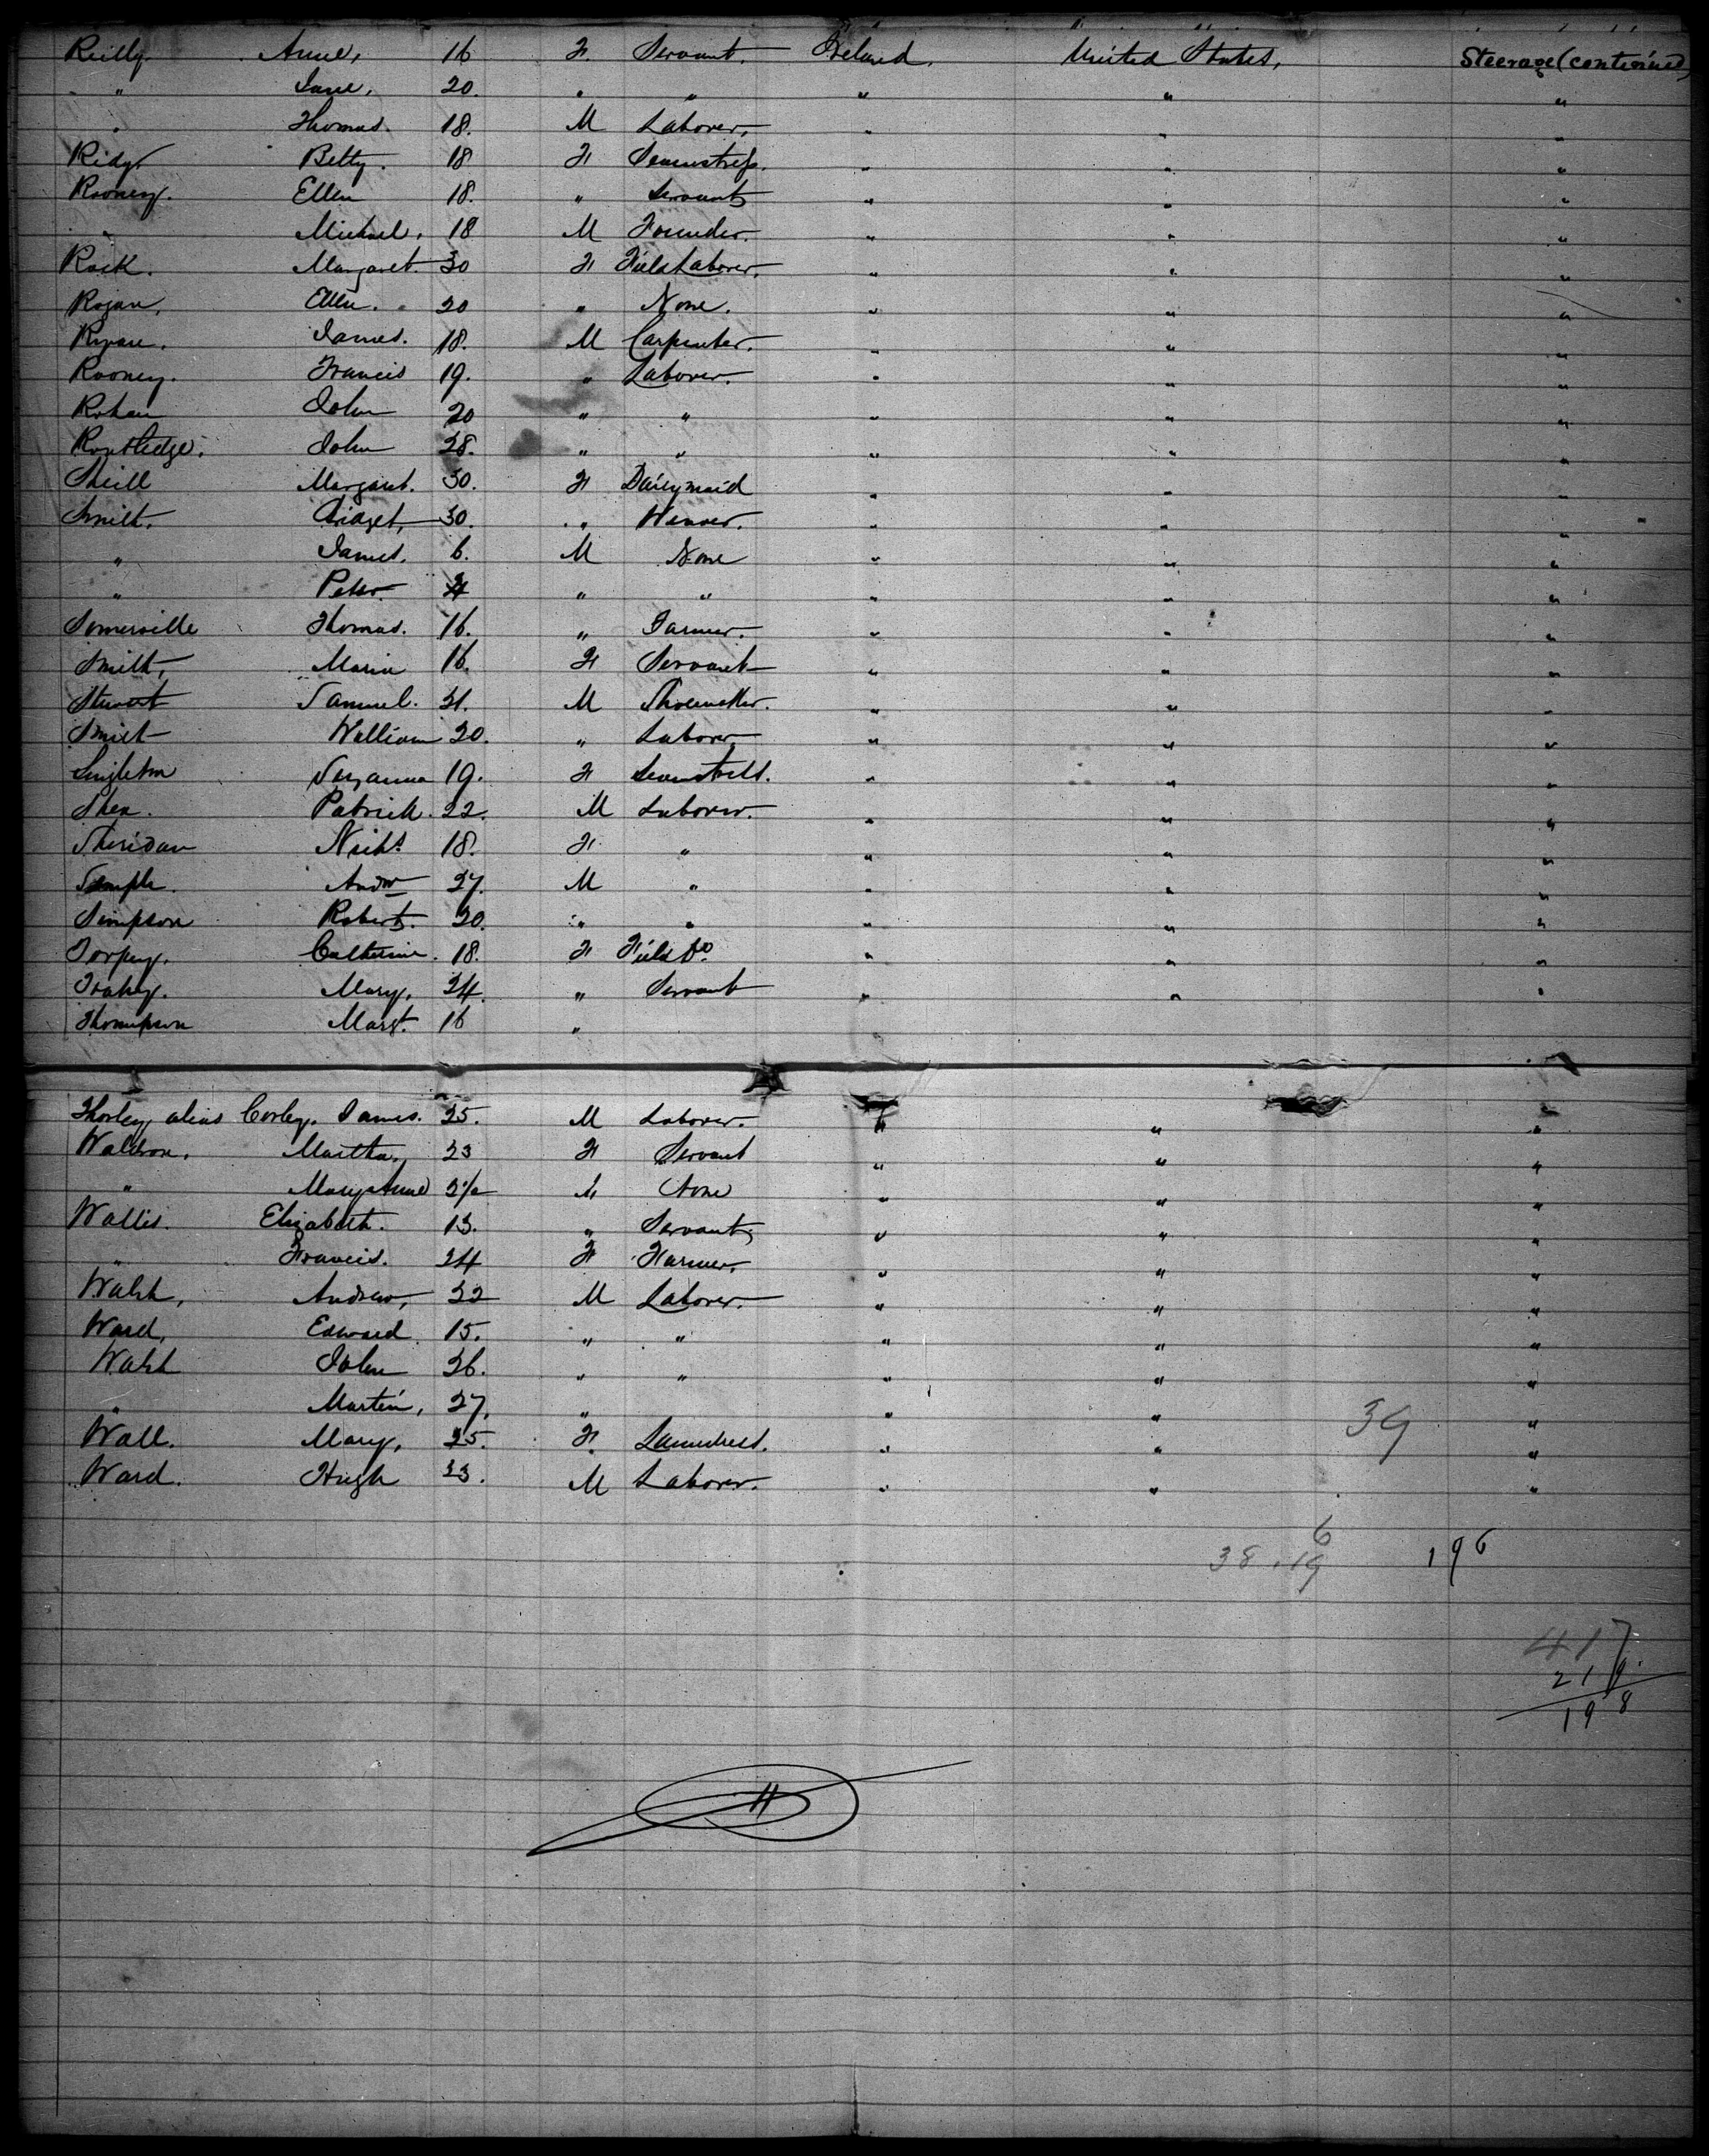 Reilly. Anne, 16 F. Servant. Ireland. United States, Steerage (continued)
" Jane, 20. " " " " "
" Thomas. 18. M Laborer, " " "
Ridge Betty. 18 F Seamstress. " " "
Rooney. Ellen 18. " Servant " " "
" Michael. 18 M Founder. " " "
Rock. Margaret. 30 F Field Laborer. " " "
Rogan, Ellen. 20 " None. " " "
Ryan. James. 18. M Carpenter. " " "
Rooney. Francis 19. " Laborer. " " "
Rohan John 20 " " " " "
Routledge. John 28. " " " " "
Sheill Margaret. 30. F Dairymaid " " "
Smith. Bridget, 30. " Weaver. " " "
" James. 6. M None " " "
" Peter 4 " " " " "
Somerville Thomas. 16. " Farmer. " " "
Smith, Maria 16. F Servant " " "
Stewart Samuel. 31. M Shoemaker. " " "
Smith William 20. " Laborer " " "
Singleton Suzanna 19. F Seamstress. " " "
Shea. Patrick. 22. M Laborer. " " "
Sheridan 18. F " " " "
Semple. Andw 27. M " " " "
Simpson Robert. 20. " " " " "
Torpey. Catherine. 18. F Field Do. " " "
Trahey. Mary, 24. " Servant " " "
Thompson Margt. 16 "
Thorley, alias Corley. James. 25. M Laborer. " " "
Waldron. Martha, 23 F Servant " " "
" Mary Anne M None " " "
Wallis. Elizabeth. 13. " Servant " " "
" Francis. 24 F Farmer. " " "
Walsh, Andrew, 22 M Laborer. " " "
Ward, Edward. 15. " " " " "
Walsh John 26. " " " " "
" Martin, 27, " " " "
39
Wall. Mary, 25. F. Laundress. " " "
Ward. Hugh 23. M Laborer. " " "
6
38 . 19 196
417
219
198